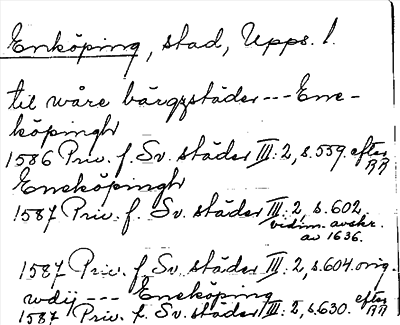 Enköping, stad, Upps. l.
til wåre bärgzstäder --- Ene-
köpingh
1586 Priv. f. Sv. städer III: 2, s. 559. efter RR
Eneköpingh
1587 Priv. f. Sv. städer III: 2, s. 602.
vidim. avskr.
av 1636.
1587 Priv. f. Sv. städer III: 2, s. 604. orig.
wdij --- Eneköping
1587 Priv. f. Sv. städer III: 2, s. 630. efter RR